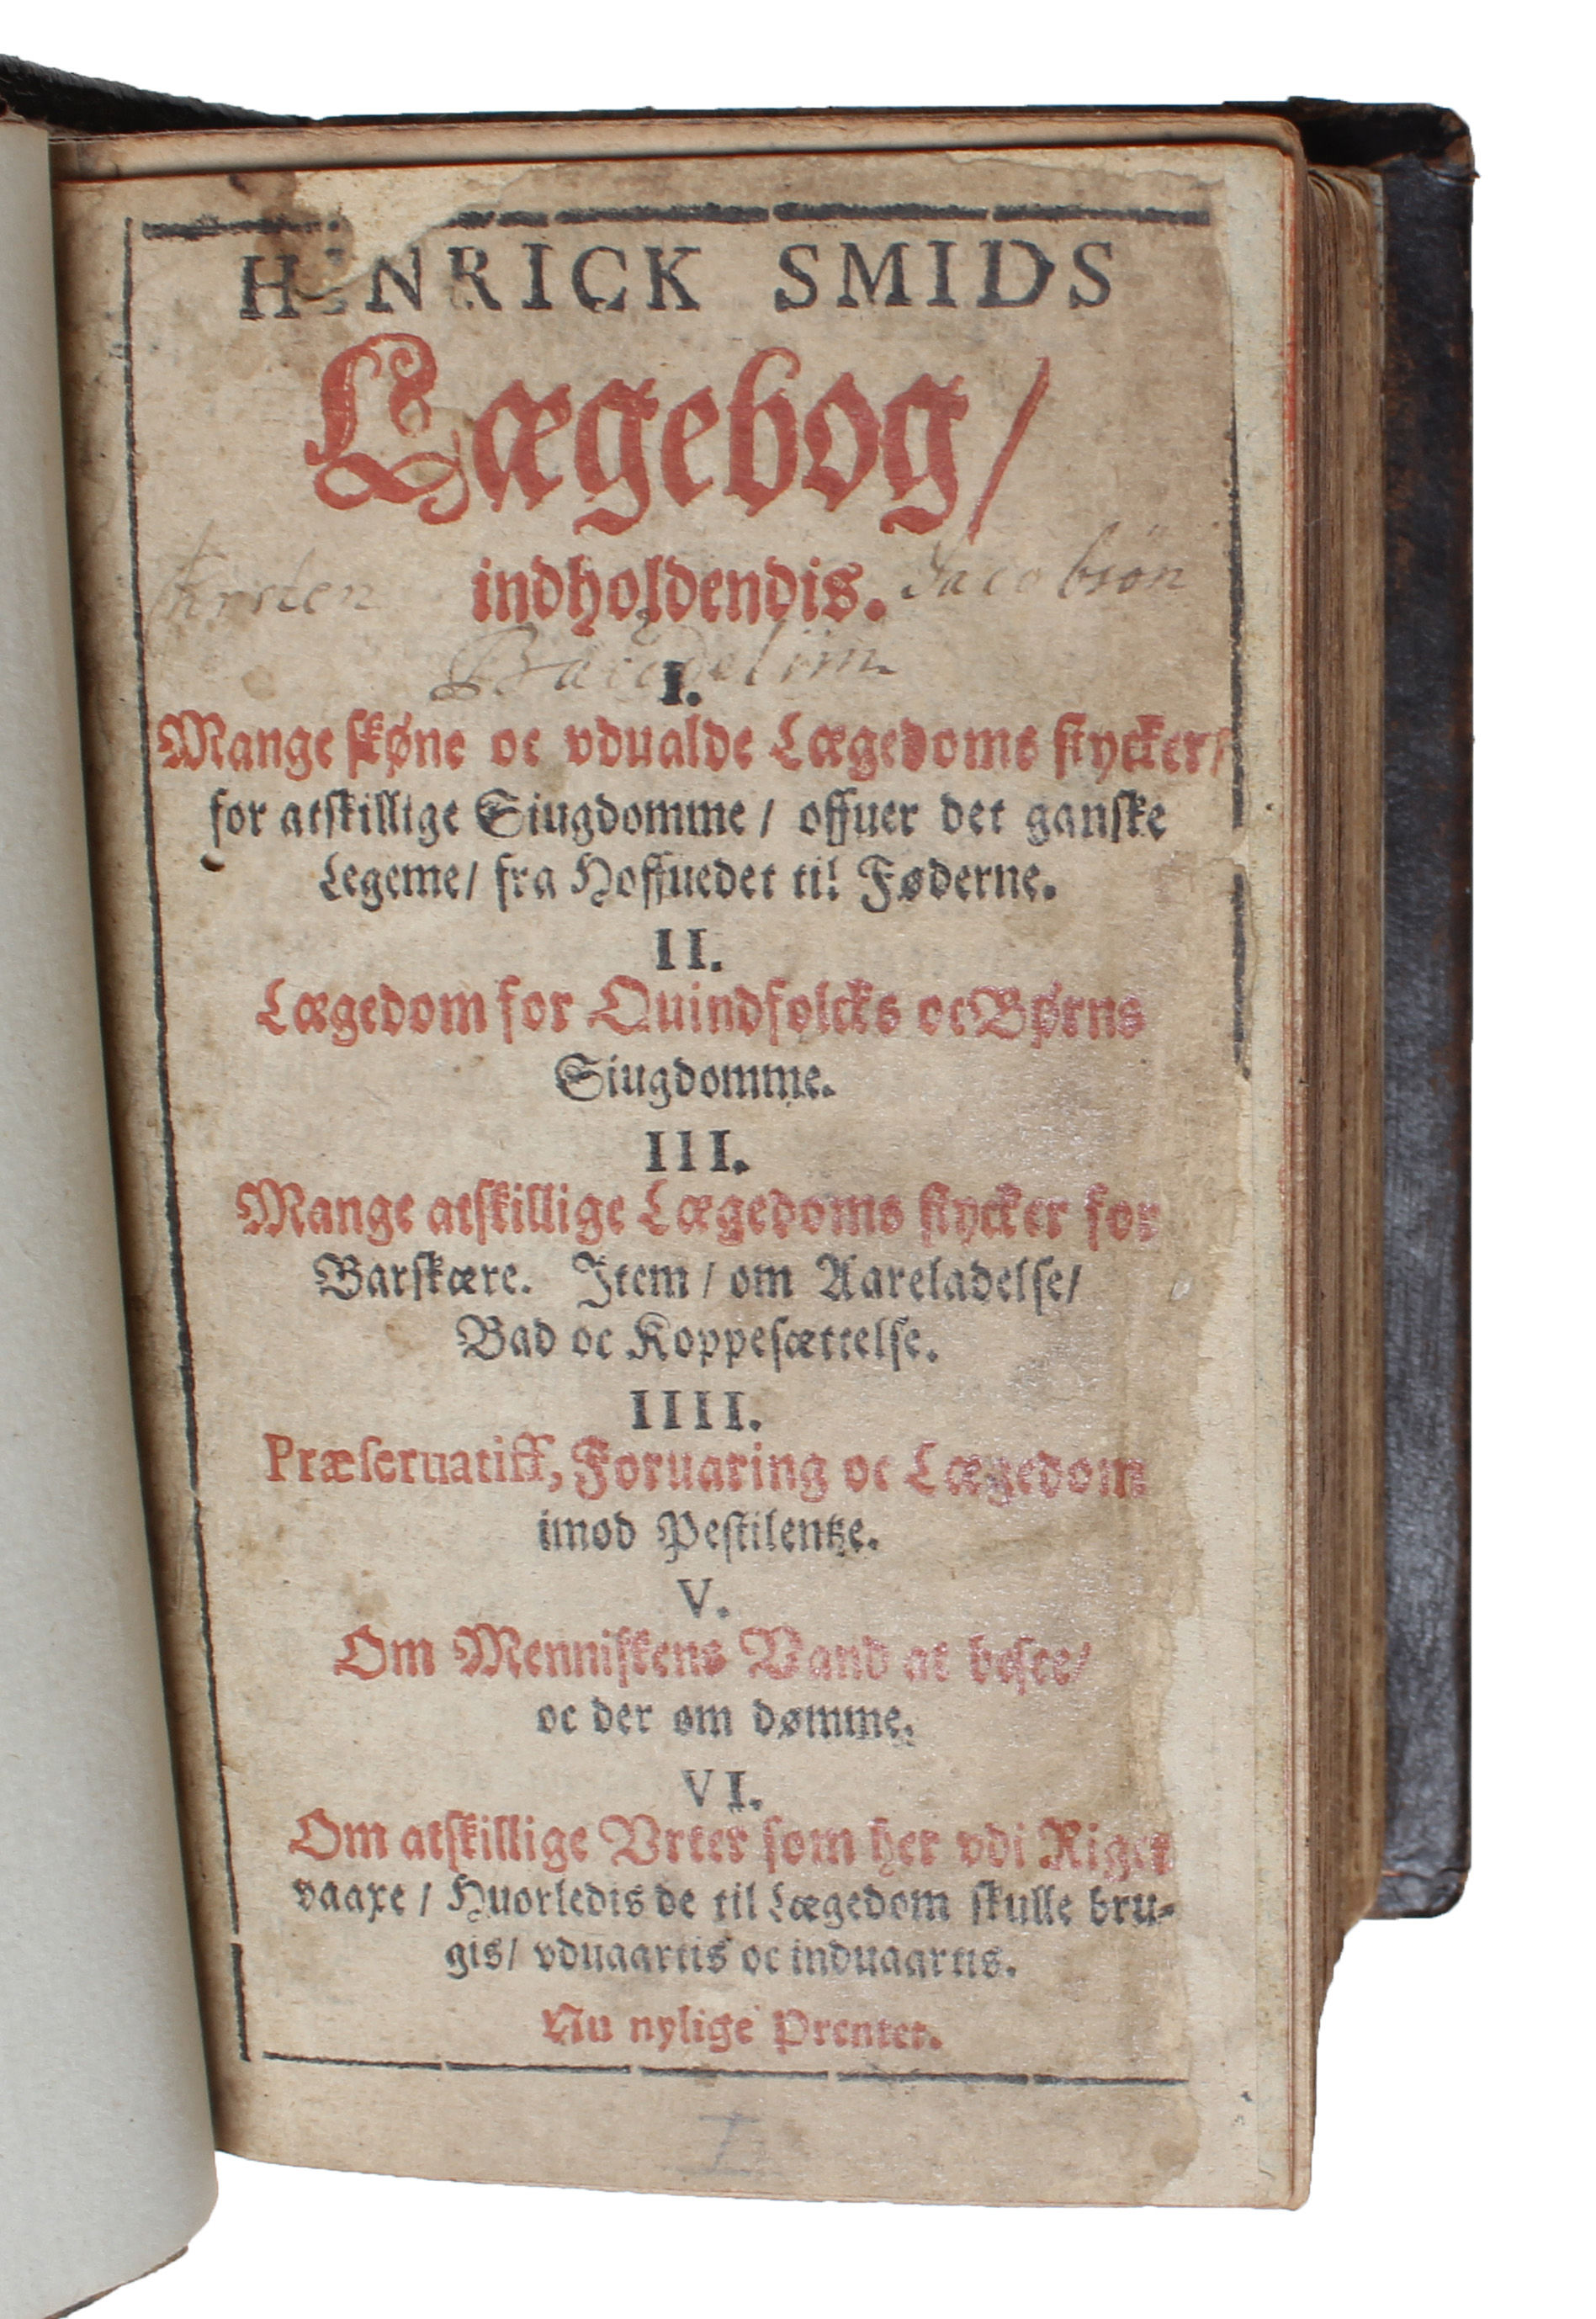 HENRICK SMIDS
Lægebog/
indholdendis.
Jacobsön
I.
Mange skøne oc vdualde Lægedoms stycker/
for atskillige Siugdomme / offuer det ganske
Legeme/ fra Hoffuedet til Føderne.
II.
Lægedom for Quindfolcks oc Børns
Siugdomme.
III.
Mange atskillige Lægedoms stycker for
Barskære. Item / om Aareladelse/
Bad oc Koppesættelse.
IIII.
Præseruatiff, Foruaring oc Lægedom
imod Pestilentze.
V.
Om Menniskens Vand at besee/
oc der om dømme.
VI.
Om atskillige Vrter som her vdi Riget
vaaxe / Huorledis de til Lægedom skulle bru-
gis/ vduaartis oc induaartis.
Nu nylige Prentet.